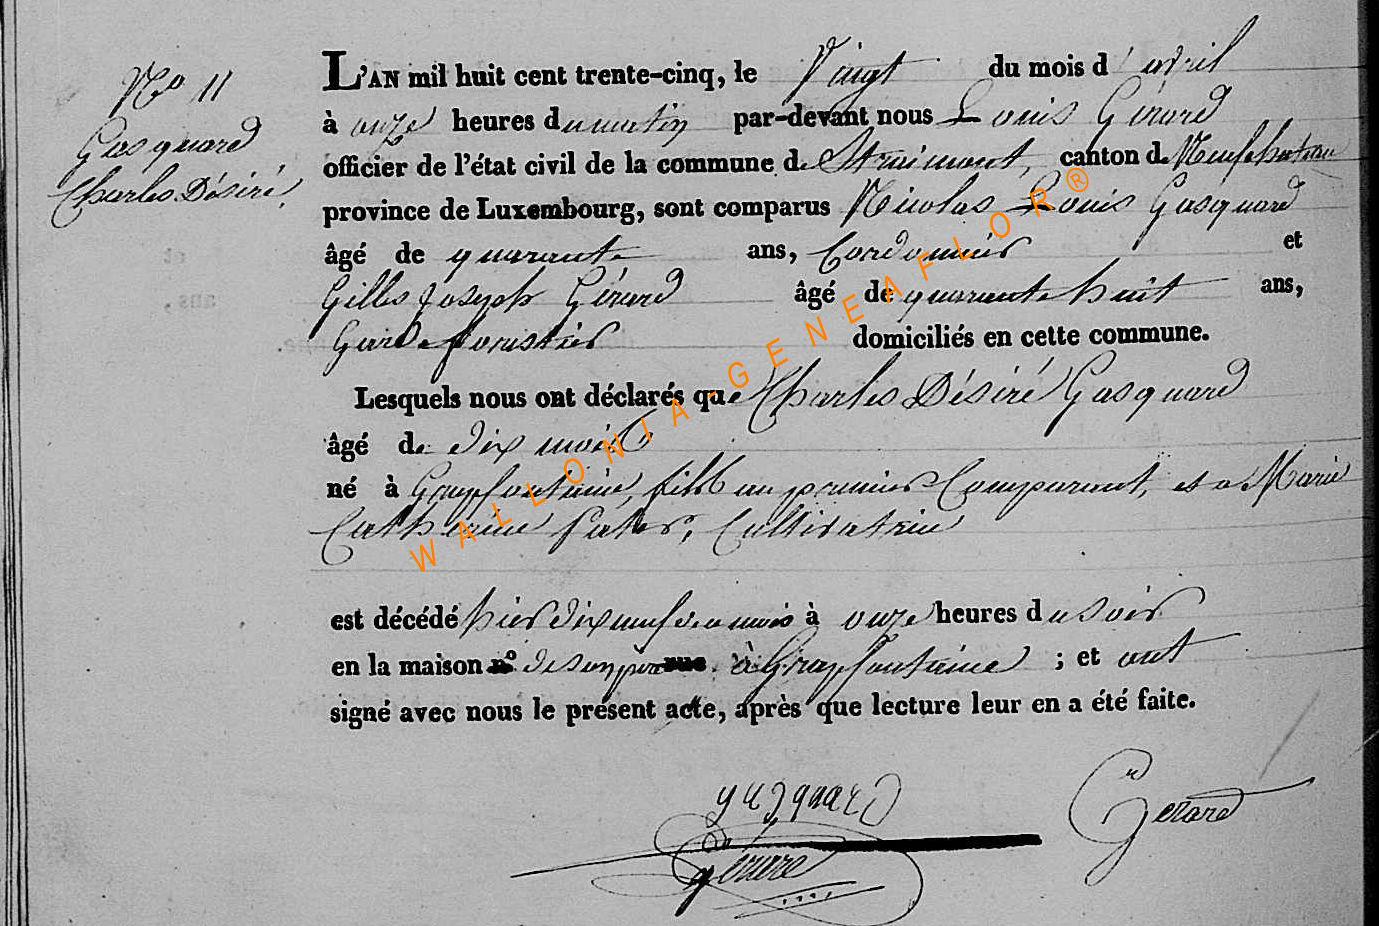 N° 11
Gasquard
Charles Désiré,
L'AN mil huit cent trente-cinq, le Vingt du mois d'avril
à onze heures du matin par-devant nous Louis Gérard
officier de l'état civil de la commune de Straimont, canton de Neufchateau
province de Luxembourg, sont comparus Nicolas Louis Gasquard
âgé de quarante ans, Cordonnier et
Gilles Joseph Gérard âgé de quarante huit ans,
Garde forestier domiciliés en cette commune.
Lesquels nous ont déclarés que Charles Désiré Gasquard
âgé de dix mois
né à Grapfontaine, fils au premier Comparant, et a Marie
Catherine Pater, Cultivatrice
est décédé hier dix neuf de ce mois à onze heures du soir
en la maison n° de son père rue à Grapfontaine ; et ont
signé avec nous le présent acte, après que lecture leur en a été faite.
gasquard
Gerard
Gérard
WALLONIA-GENEAFLOR®